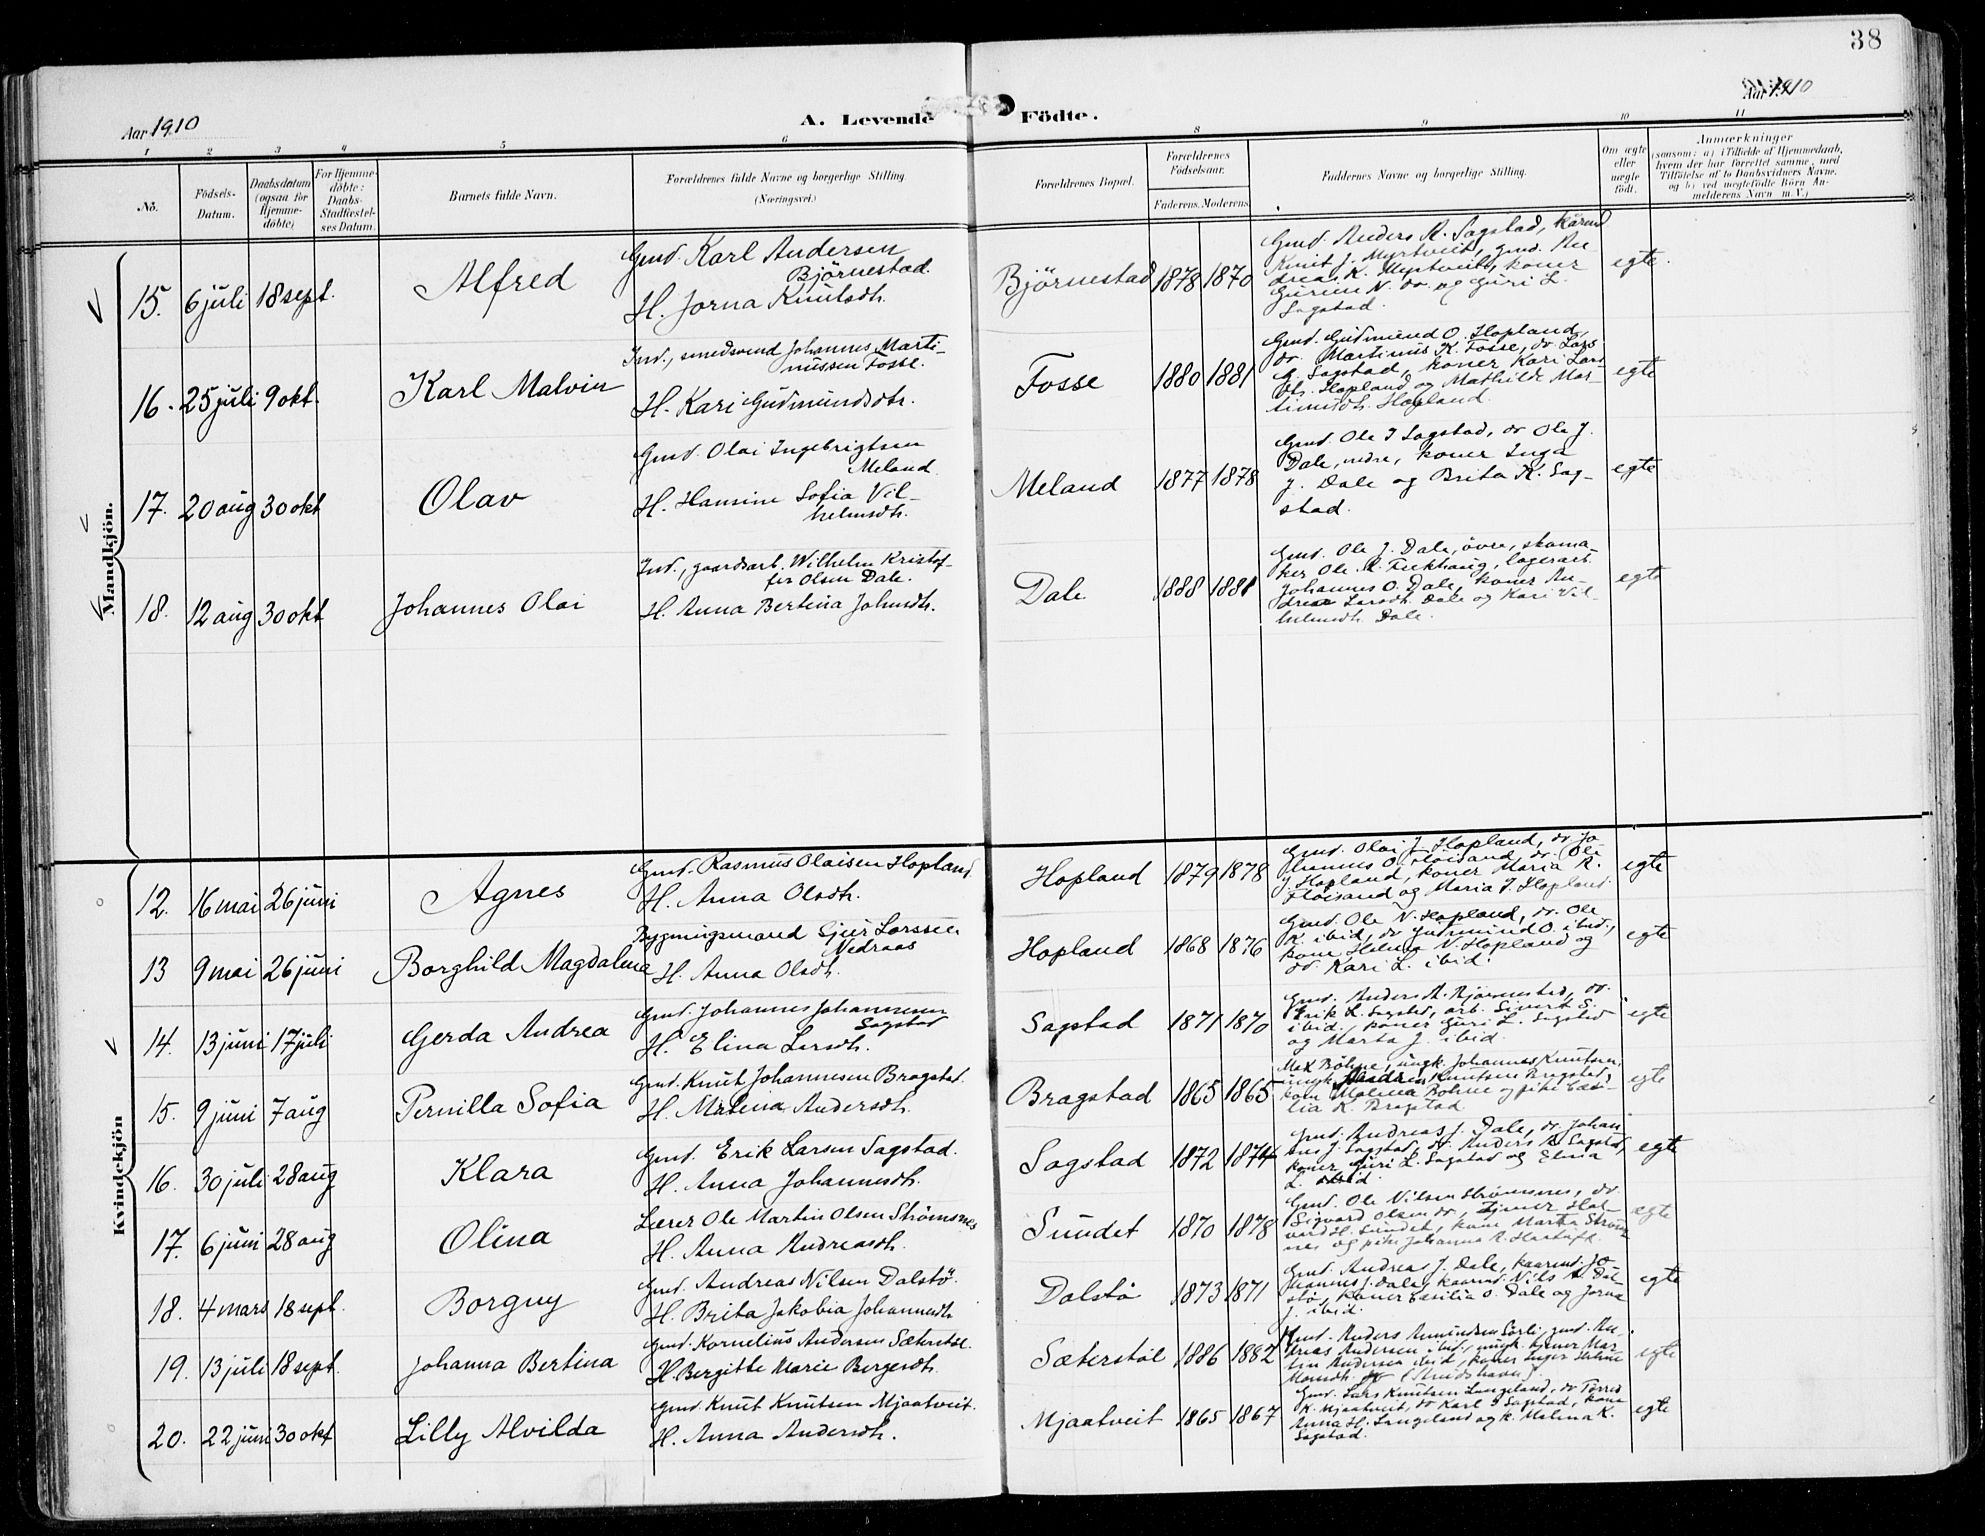 38
Aar 1910
A. Levende Födte.
Aar 1910
1 2 3 4 5 6 8 9 10 11
No.
Födsels-
Datum.
Daabsdatum
(ogsaa for
Hjemme-
döbte)
For Hjemme-
döbte:
Daabs-
Stadfæstel-
ses Datum.
Barnets fulde Navn.
Forældrenes fulde Navne og borgerlige Stilling.
(Næringsvei.)
Forældrenes Bopæl.
Forældrenes
Födselsaar.
Faderens. Moderens.
Faddernes Navne og borgerlige Stilling.
Om ægte
eller
uægte
födt.
Anmærkninger
(saasom: a) i Tilfælde af Hjemmedaab,
hvem der har forrettet samme, med
Tilföielse af to Daabsvidners Navne,
og b) ved uegtefödte Börn An-
melderens Navn m.V.)
Mandkjön.
15. 6 juli 18 sept. Alfred
Gmd. Karl Andersen
Björnestad.
H. Jorna Knutsdtr.
Björnestad 1878 1870
Gmd. Anders A. Sagstad, kårmd
Knut J. Myrtveit, gmd. An-
dreas K. Myrtveit, koner
Gurine N. do. og Guri L.
Sagstad.
egte.
16. 25 juli 9 okt. Karl Malvin
Ind., smedsvend Johannes Marti-
nussen Fosse.
H. Kari Gudmundsdtr.
Fosse 1880 1881
Gmd. Gudmund O. Hopland,
do. Martinus K. Fosse, do. Lars
Sagstad, koner Kari Lars
dtr. Hopland og Mathilde Mar-
tinusdtr. Hopland.
egte
17. 20 aug 30 okt Olav
Gmd. Olai Ingebrigtsen
Meland.
H. Hansine Sofia Vil-
helmsdtr.
Meland 1877 1878
Gmd. Ole I Sagstad, do Ole J.
Dale, nedre, koner Inga
J. Dale og Brita K. Sag-
stad.
egte
18. 12 aug 30 okt Johannes Olai
Ind., gaardsarb. Wilhelm Kristof-
fer Olsen Dale.
H. Anna Bertina Johnsdtr.
Dale 1888 1881
Gmd. Ole J. Dale, övre, skoma-
ker Ole R. lagerarb
Johannes O. Dale, koner An-
drea Larsdtr. Dale og Kari Vil-
helmsdtr. Dale.
egte
Kvindekjön
12. 16 mai 26 juni Agnes
Gmd. Rasmus Olaisen Hopland
H. Anna Olsdtr.
Hopland 1879 1878
Gmd. Olai J. Hopland, do Jo-
hannes O. Floisand, do. Ole
J. Hopland, koner Maria R.
Floisand og Maria J. Hopland.
egte
13 9 mai 26 juni Borghild Magdalena
Bygningsmand Gjer Larssen
Nedraas
H. Anna Olsdtr.
Hopland 1868 1876
Gmd. Ole N. Hopland, do. Ole
K. ibid, do Gudmund O. ibid.,
kone Helena N. Hopland og
do. Kari L. ibid.
egte
14. 13 juni 17 juli Gerda Andrea
Gmd. Johannes Johannesen
Sagstad
H. Elina Larsdtr.
Sagstad 1871 1870
Gmd. Anders A. Bjørnestad, do.
Erik L. Sagstad, arb. Sivert S.
ibid., koner Guri L. Sagstad
og Marta J. ibid.
egte
15. 9 juni 7 aug Pernilla Sofia
Gmd. Knut Johannesen Bragstad.
H. Malena Andersdtr.
Bragstad 1865 1865
Max Böhne, ungk. Johannes Knutsen,
ungk. Andreas Knutsen Bragstad,
kone Malena Bohne og pike Cæci-
lia K. Bragstad.
egte
16. 30 juli 28 aug Klara
Gmd. Erik Larsen Sagstad.
H. Anna Johannesdtr.
Sagstad 1872 1874
Gmd. Andreas J. Dale, do. Johan-
nes J. Sagstad, do. Anders A Sagstad,
koner Guri L. Sagstad og Elina
L. ibid.
egte
17. 6 juni 28 aug Olina
Lærer Ole Martin Olsen Strömsnes
H. Anna Andreasdtr.
Sundet 1870 1878
Gmd. Ole Nilsen Strömsnes, do
Sigvard Olsen do, Hal-
vard H. Sundet, kone Marta Ströms-
nes og pike Johanna
ægte
18. 4 mars 18 sept. Borgny
Gmd. Andreas Nilsen Dalstö.
H. Brita Jakobia Johannesdtr.
Dalstö 1873 1871
Gmd. Andreas J. Dale, kaarmd. Jo-
hannes J. Dale, kaarmd. Nils A. Dal-
stö, koner Cæcilia O. Dale og Jorna
J. ibid.
egte
19. 13 juli 18 sept. Johanna Bertina
Gmd. Kornelius Andersen Sæterstöl.
H. Bergitte Marie Bergesdtr.
Sæterstöl 1886 1882
Gmd. Anders Amundsen Sörli, gmd. An-
dreas Andersen ibid., ungk. Mar-
tin Andersen ibid, koner Inger Helene
egte
20. 22 juni 30 okt Lilly Alvilda
Gmd. Knut Knutsen Mjaatveit.
H. Anna Andersdtr.
Mjaatveit 1865 1867
Gmd. Lars Knutsen Langeland, do Torres
K. Mjaatveit, do Karl J. Sagstad, kone
Anna H. Langeland og k. Malena K.
Sagstad.
egte